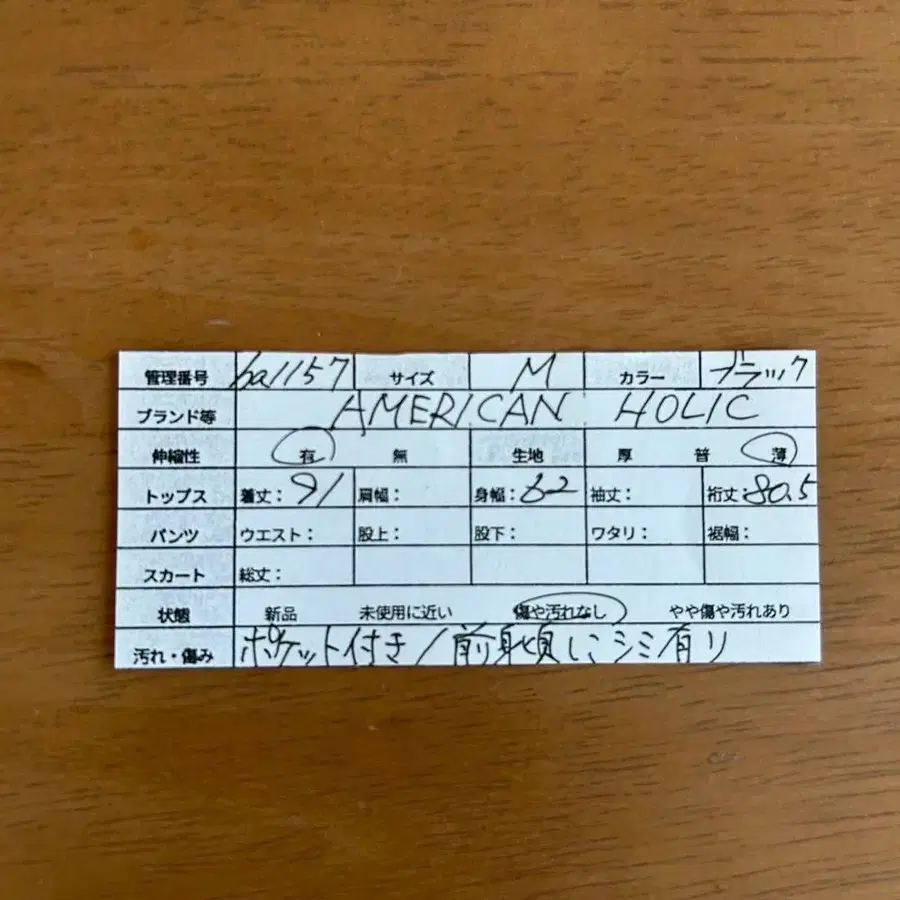 管理番号 ba1157 サイズ M カラー ブラック
ブランド等 AMERICAN HOLIC
伸縮性 有 無 生地 厚 普 薄
トップス 着丈：91 肩幅： 身幅：62 袖丈： 裄丈：80.5
パンツ ウエスト： 股上： 股下： ワタリ： 裾幅：
スカート 総丈：
状態 新品 未使用に近い 傷や汚れなし やや傷や汚れあり
汚れ・傷み ポケット付き/前身頃にシミ有り